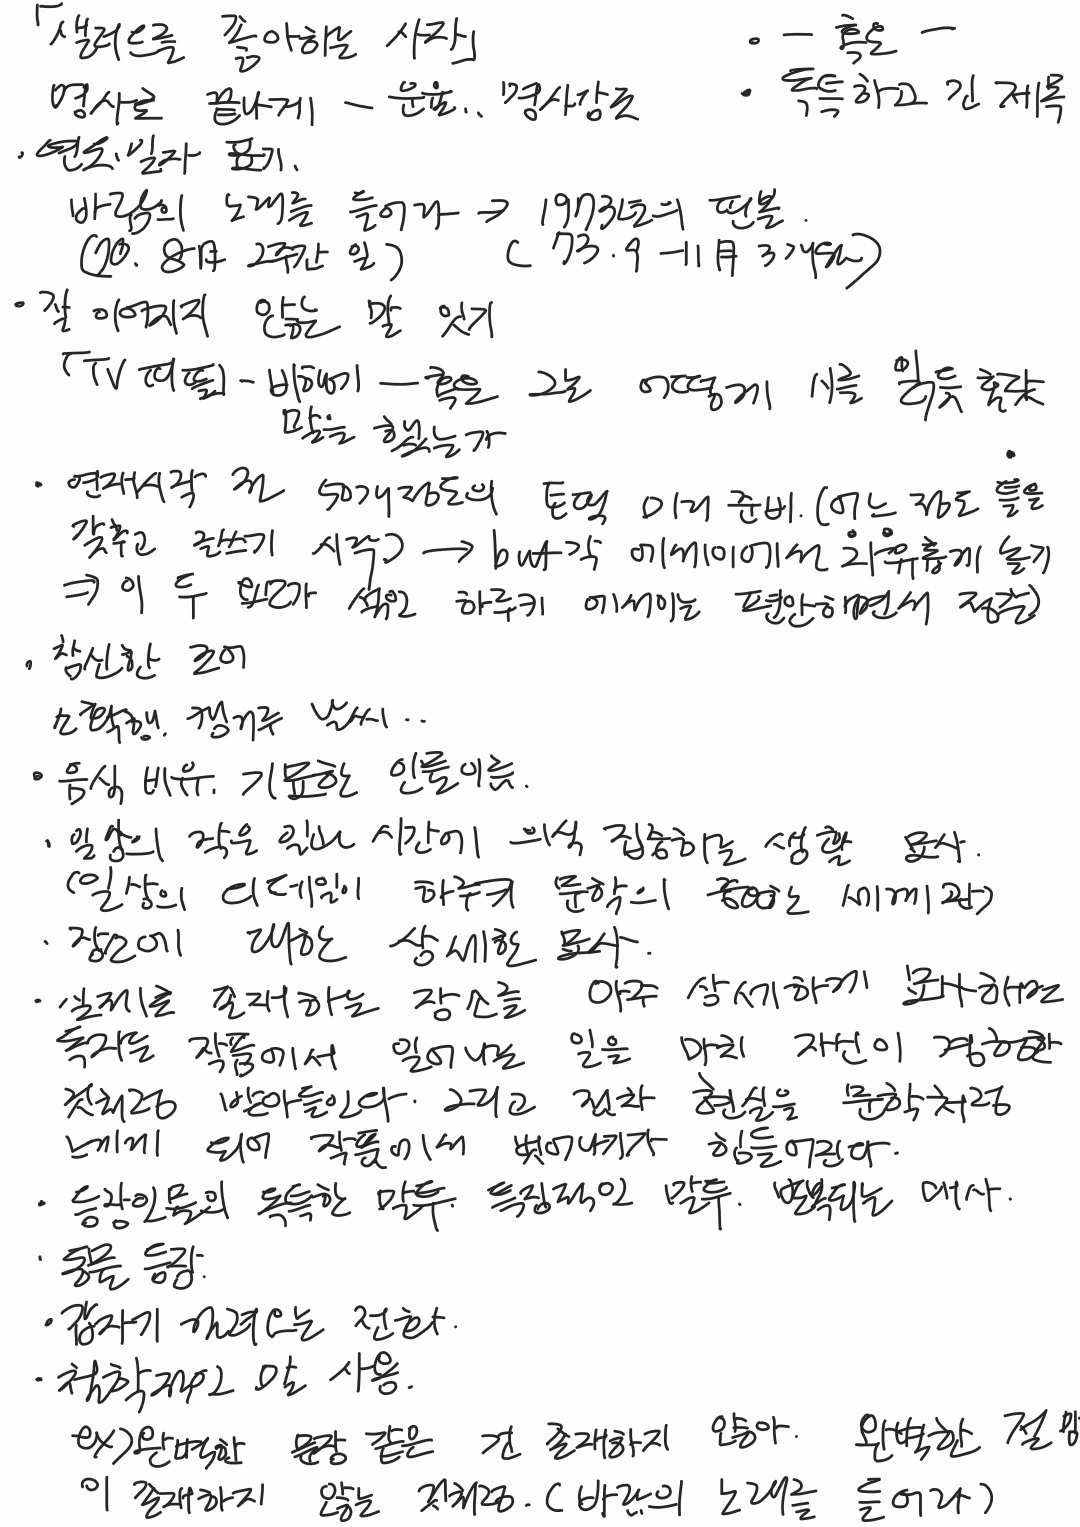 「샐러드를 좋아하는 사자」
· — 혹은 —
명사로 끝나게 — 운율.. 명사강조
· 독특하고 긴 제목
· 연도, 일자 표기.
바람의 노래를 들어라 → 1973년의 핀볼.
(70. 8月 2주간 일) (73. 9 -11月 3개월)
· 잘 이어지지 않는 말 잇기
「TV 피플」 - 비행기 — 혹은 그는 어떻게 시를 읽듯 혼잣
말을 했는가
· 연재시작 전 50개정도의 토픽 미리 준비. (어느 정도 틀을
갖추고 글쓰기 시작) → but 각 에세이에서 자유롭게 놀기
⇒ 이 두 가 섞인 하루키 에세이는 편안하면서 정준)
· 참신한 조어
소확행. 캥거루 날씨..
· 음식 비유. 기묘한 인물이름.
· 일상의 작은 일과 시간에 의식 집중하는 생활 묘사.
(일상의 디테일이 하루키 문학의 세계관)
· 장소에 대한 상세한 묘사.
· 실제로 존재하는 장소를 아주 상세하게 묘사하면
독자는 작품에서 일어나는 일을 마치 자신이 경험한
것처럼 받아들인다. 그리고 점차 현실을 문학처럼
느끼게 되어 작품에서 벗어나기가 힘들어진다.
· 등장인물의 독특한 말투. 특징적인 말투. 반복되는 대사.
· 동물 등장.
· 갑자기 걸려오는 전화.
· 철학적인 말 사용.
ex) 완벽한 문장 같은 건 존재하지 않아. 완벽한 절망
이 존재하지 않는 것처럼. (바람의 노래를 들어라)